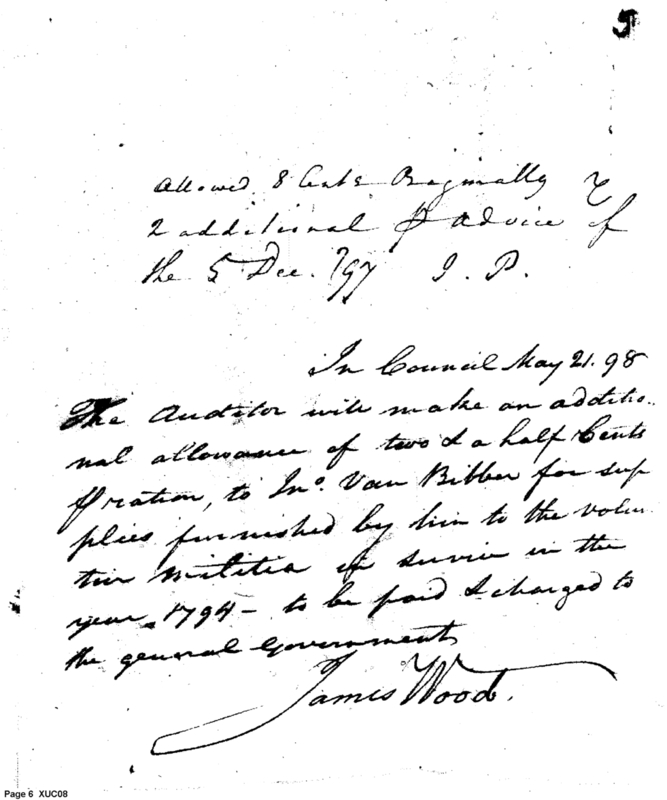 5
Allowed 8 Cents Originally &
2 additional ⅌ advice of
the 5 Dec. 797 J. P.
In Council May 21. 98
The Auditor will make an additio..
nal allowance of two & a half Cents
⅌ ration, to Jno. Van Bibber for sup
plies furnished by him to the volun
tier Militia in service in the
year 1794 - to be paid & charged to
the general Government
James Wood.
Page 6 XUC08